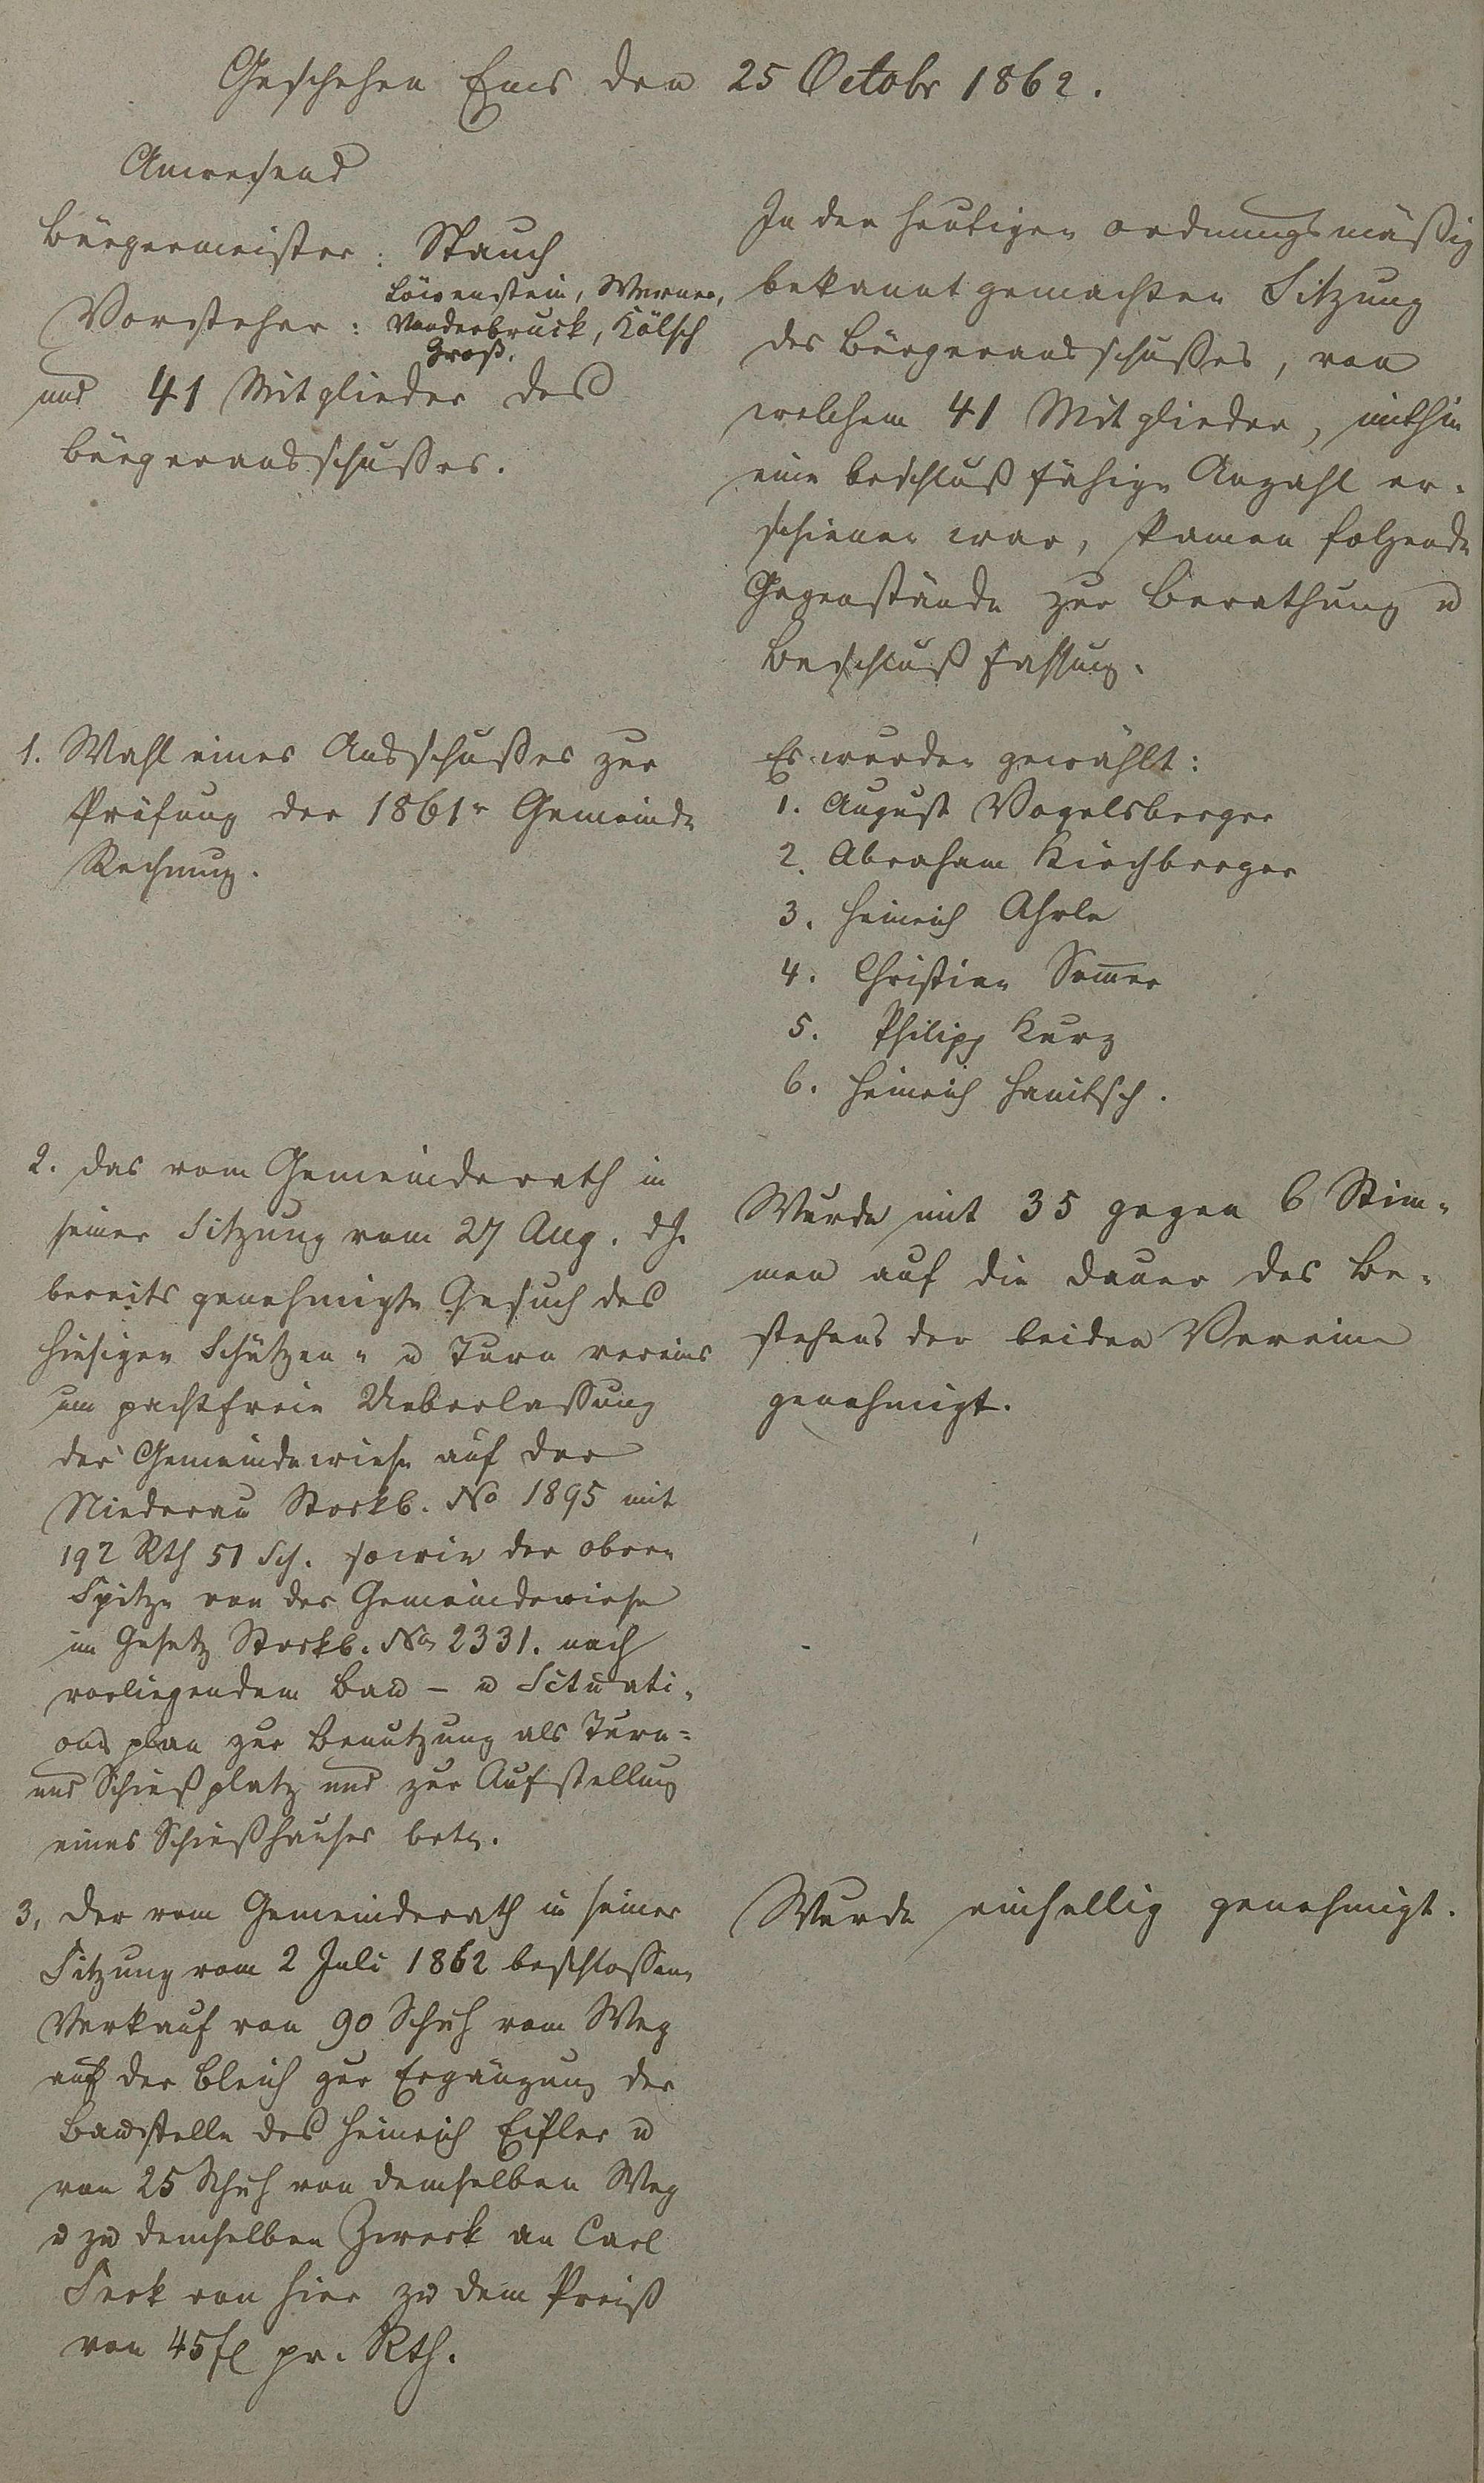 Geschehen Ems den 25 Octobr 1862.
Anwesend
Bürgermeister: Spauch
Vorsteher: Löwenstein, Werner,
Vanderbruck, Kölsch
Groß.
und 41 Mitglieder des
Bürgerausschußes.
In der heutigen ordnungsmäßig
bekannt gemachten Sitzung
des Bürgerausschußes, von
welchem 41 Mitglieder, mithin
eine beschlußfähige Anzahl er-
schienen war, kamen folgende
Gegenstände zur Berathung u
Beschlußfassung.
1. Wahl eines Ausschußes zur
Prüfung der 1861r Gemeinde
Rechnung.
Es wurden gewählt:
1. August Vogelsberger
2. Abraham Kirchberger
3. Heinrich Ahrle
4. Christian Som̅er
5. Philipp Kurz
6. Heinrich Hanitsch.
2. Das vom Gemeinderath in
seiner Sitzung vom 27 Aug. d.J.
bereits genehmigte Gesuch des
hiesigen Schützen- u Turn vereins
um pachtfreie Ueberlassung
der Gemeindewiese auf der
Niederau Stockb. No 1895 mit
192 Rth 51 Sch. sowie der obern
Spitze von der Gemeindewiese
im Gesetz Stockb. No 2331. nach
vorliegendem Bau- u Situati-
ons plan zur Benutzung als Turn-
und Schießplatz und zur Aufstellung
eines Schießhauses betr.
Wurde mit 35 gegen 6 Stim-
men auf die Dauer des Be-
stehens der beiden Vereine
genehmigt.
3. Der vom Gemeinderath in seiner
Sitzung vom 2 Juli 1862 beschlossene
Verkauf von 90 Schuh vom Weg
auf der Bleich zur Ergänzung der
Baustelle des Heinrich Eifler u
von 25 Schuh von demselben Weg
u zu demselben Zweck an Carl
Seck von hier zu dem Preiß
von 45 fl pr. Rth.
Wurde einhellig genehmigt.